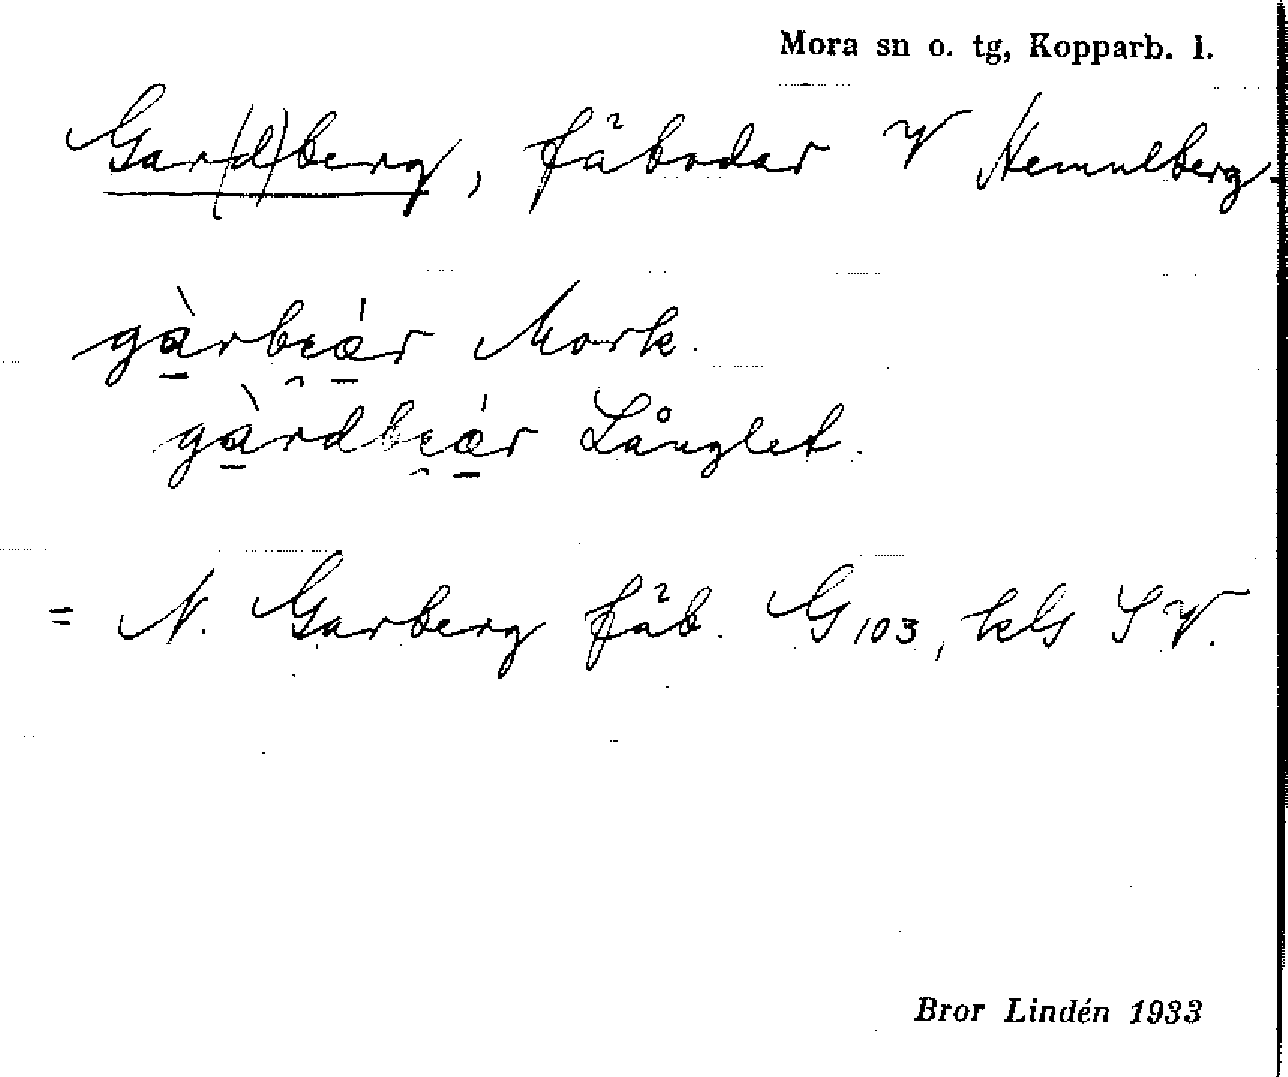 Mora sn o. tg, Kopparb. l.
Gar(d)berg, fäbodar V Hemulberg.
gàrbɛár Mork.
gàrdbɛár Långlet.
= N. Garberg fäb. G103, kG SV.
Bror Lindén 1933